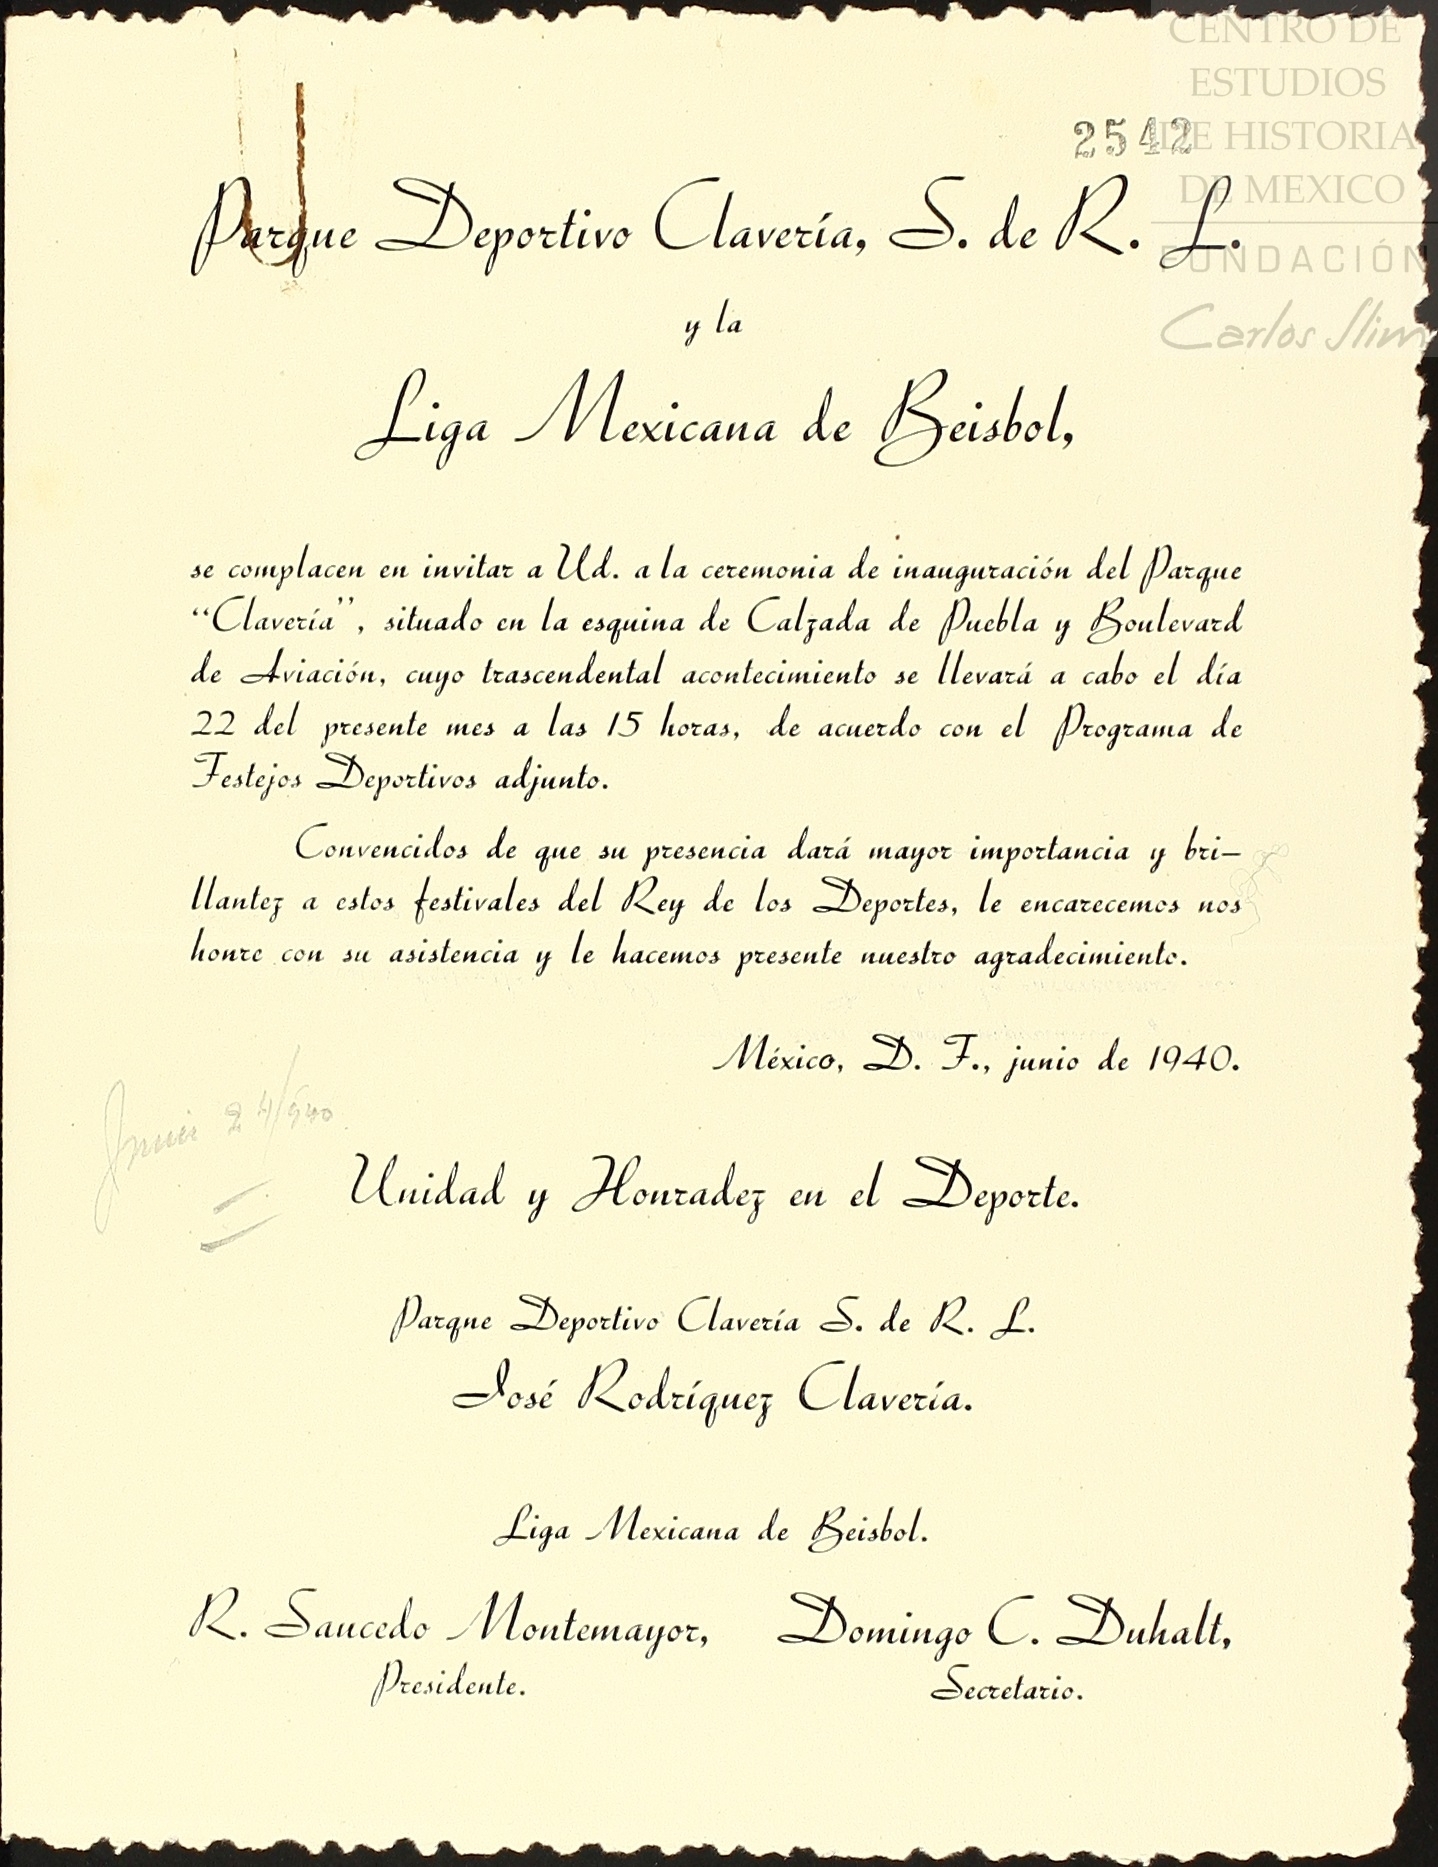 CENTRO DE
ESTUDIOS
DE HISTORIA
DE MEXICO
FUNDACIÓN
Carlos Slim
2542
Parque Deportivo Clavería, S. de R. L.
y la
Liga Mexicana de Beisbol,
se complacen en invitar a Ud. a la ceremonia de inauguración del Parque
“Clavería”, situado en la esquina de Calzada de Puebla y Boulevard
de Aviación, cuyo trascendental acontecimiento se llevará a cabo el día
22 del presente mes a las 15 horas, de acuerdo con el Programa de
Festejos Deportivos adjunto.
Convencidos de que su presencia dará mayor importancia y bri-
llantez a estos festivales del Rey de los Deportes, le encarecemos nos
honre con su asistencia y le hacemos presente nuestro agradecimiento.
México, D. F., junio de 1940.
Junio 24/940.
Unidad y Honradez en el Deporte.
Parque Deportivo Clavería S. de R. L.
José Rodríguez Clavería.
Liga Mexicana de Beisbol.
R. Saucedo Montemayor, Domingo C. Duhalt,
Presidente. Secretario.